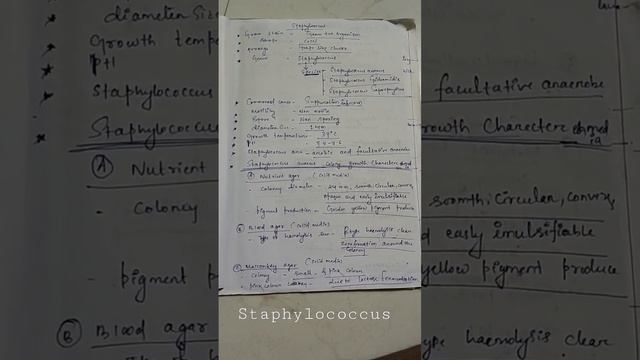 Staphylococcus
Gram stain - Gram +ve organism
Shape - Cocci
arrange - Grape like cluster
Genus - Staphylococcus
Species - Staphylococcus aureus
Staphylococcus Epidermidis
Staphylococcus Saprophyticus
Commonest cause - Suppuration
Motility - Non motile
Non sporing
diameter size - 1 mm
Growth temperature - 37°C
PH - 7.4-7.6
Staphylococcus are - aerobic and facultative anaerobe
Staphylococcus aureus colony growth Character
A Nutrient agar (solid media)
- Colony diameter - smooth, circular, convex,
opaque and easily imulsifiable
pigment production - Golden yellow pigment produce
B Blood agar (solid media)
- Type of hemolysis - B type haemolysis clear
around the
colony
agar (solid media)
- colony - small & pink colour
- pink colour colony - due to lactose fermentation
Staphylococcus
diameter size
Growth temp
PH
Staphylococcus
Staphylococcus
A Nutrient
- Colony
- pigment p
B Blood agar
facultative anaerobe
rowth Character
smooth, circular, convex,
d easily imulsifiable
yellow pigment produce
type haemolysis clear